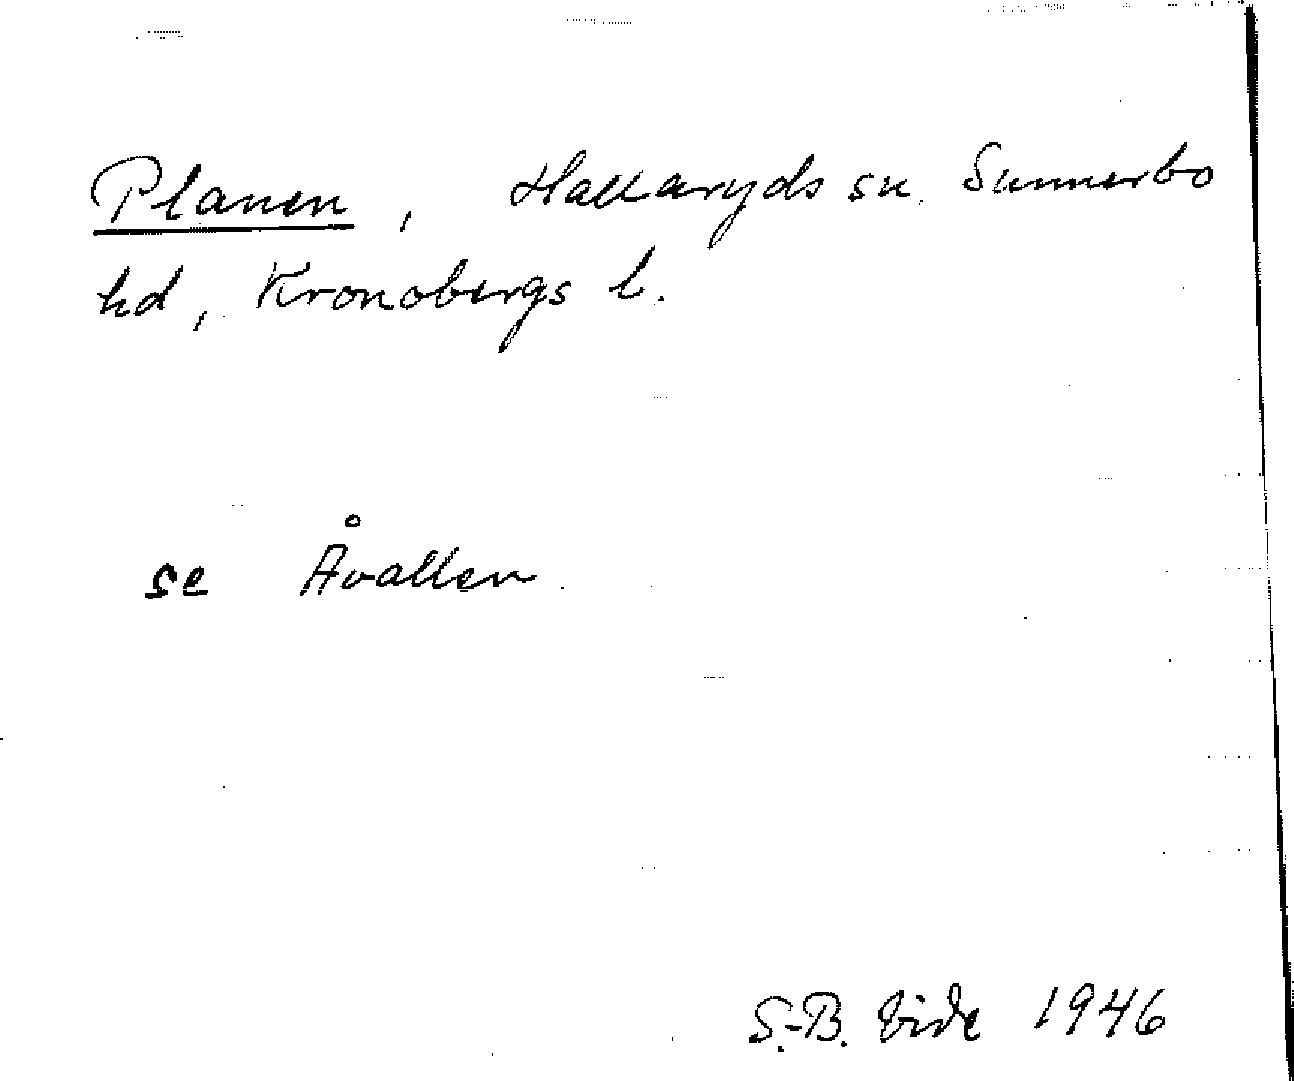 Planen, Hallaryds sn. Sunnerbo
hd, Kronobergs l.
se Åvallen.
S.-B. Vide 1946